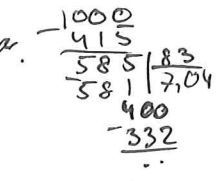 -1000
415
585 | 83
-581 | 7,04
400
-332
..